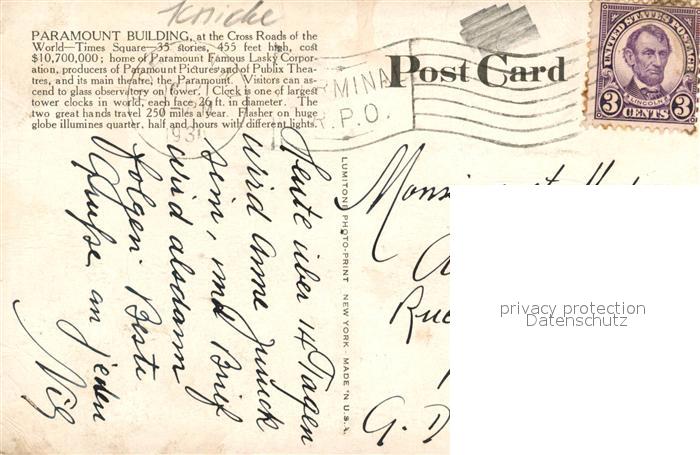 Knicke
PARAMOUNT BUILDING, at the Cross Roads of the
World—Times Square—35 stories, 455 feet high, cost
$10,700,000; home of Paramount Famous Lasky Corpor-
ation, producers of Paramount Pictures and of Publix Thea-
tres, and its main theatre, the Paramount. Visitors can as-
cend to glass observatory on tower. Clock is one of largest
tower clocks in world, each face 26 ft. in diameter. The
two great hands travel 250 miles a year. Flasher on huge
globe illumines quarter, half and hours with different lights.
Post Card
TERMINAL
R.P.O.
UNITED STATES POSTAGE
LINCOLN
3 CENTS 3
Heute über 14 Tagen
wird Anne zurück
sein, und Brief
wird alsdann
folgen. Beste
Grüsse an jeden
LUMITONE PHOTO-PRINT NEW YORK. MADE IN U.S.A.
Rue
G. D
privacy protection
Datenschutz